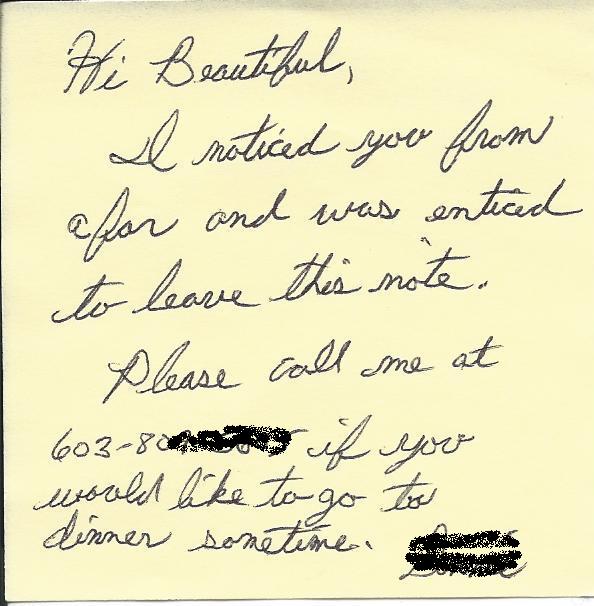 Hi Beautiful,
I noticed you from
afar and was enticed
to leave this note.
Please call me at
603-80 if you
would like to go to
dinner sometime.